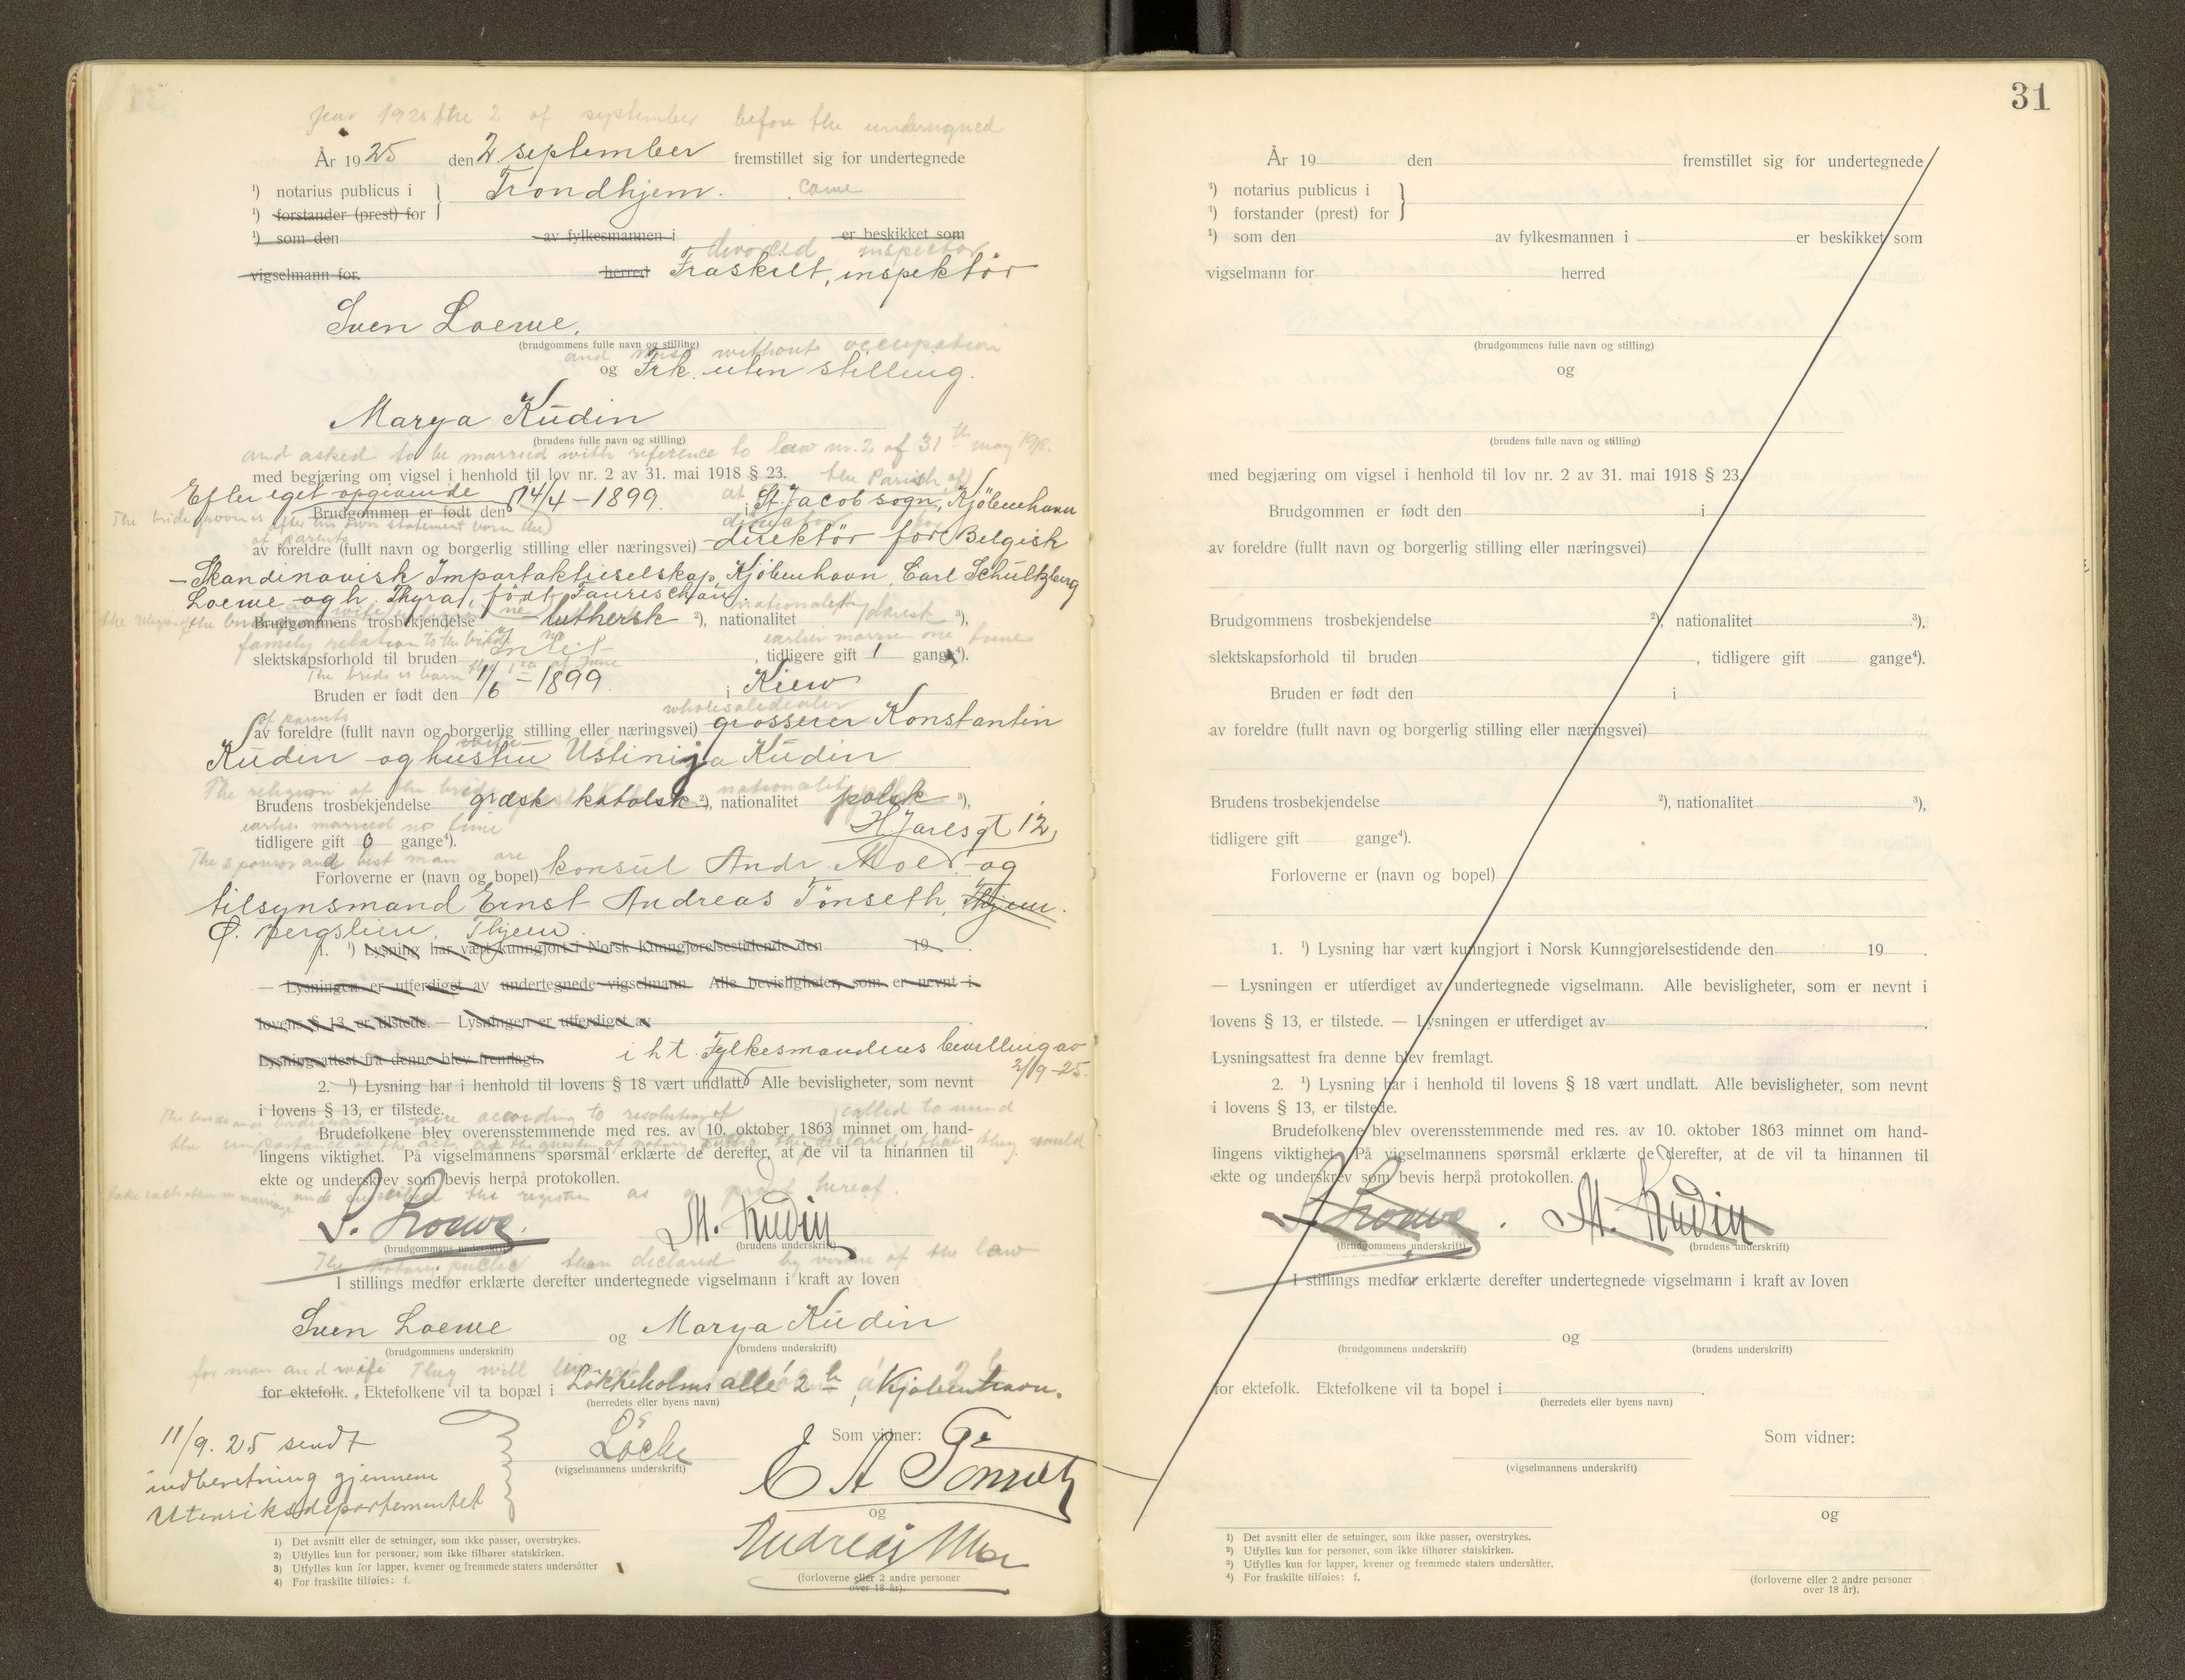 Year 1925 the 2 of september before the undersigned
År 1925 den 2 september fremstillet sig for undertegnede
¹) notarius publicus i } Trondhjem. came
¹) forstander (prest) for
¹) som den av fylkesmannen i er beskikket som
divorced inspector
vigselmann for herred Fraskilt, inspektör
Sven Loewe.
(brudgommens fulle navn og stilling)
and miss without occupation
og Frk. uten stilling.
Marya Kudin
(brudens fulle navn og stilling)
and asked to be married with reference to law nr. 2 of 31th may 1918.
med begjæring om vigsel i henhold til lov nr. 2 av 31. mai 1918 § 23.
the Parish of
Efter eget opgivende
Brudgommen er født den 14/4 – 1899. i St. Jacob sogn, Kjöbenhavn
The bridegroom is after his own statement born the
of parents director for
av foreldre (fullt navn og borgerlig stilling eller næringsvei) direktör for Belgisk
– Skandinavisk Importaktieselskap, Kjöbenhavn, Carl Schultzberg
Loewe og h. Thyra, födt Faurschau.
the religion of the
Brudgommens trosbekjendelse – luthersk ²), nationalitet ³),
family relation to the bride no earlier married one time
slektskapsforhold til bruden Intet , tidligere gift 1 gang⁴).
The bride is born the 1 of June
Bruden er født den 1/6 – 1899 i Kiew
of parents wholesaledealer
av foreldre (fullt navn og borgerlig stilling eller næringsvei) grosserer Konstantin
wife
Kudin og hustru Ustinija Kudin
The religion of the bride nationality
Brudens trosbekjendelse græsk katolsk ²), nationalitet polsk ³),
earlier married no time
tidligere gift 0 gange⁴). H. Jarlsgt 12,
The sponsor and best man are
Forloverne er (navn og bopel) konsul Andr. Moe og
tilsynsmand Ernst Andreas Tönseth, Thjem.
Ö. Bergslien, Thjem.
1. ¹) Lysning har vært kunngjort i Norsk Kunngjørelsestidende den 19 .
— Lysningen er utferdiget av undertegnede vigselmann. Alle bevisligheter, som er nevnt i
lovens § 13, er tilstede. — Lysningen er utferdiget av
Lysningsattest fra denne blev fremlagt. i h t. Fylkesmandens bevilling av
2/9 – 25.
2. ¹) Lysning har i henhold til lovens § 18 vært undlatt. Alle bevisligheter, som nevnt
i lovens § 13, er tilstede.
were according to resolution of called to mind
Brudefolkene blev overensstemmende med res. av 10. oktober 1863 minnet om hand-
the importance of the act they declared, that they would
lingens viktighet. På vigselmannens spørsmål erklærte de derefter, at de vil ta hinannen til
ekte og underskrev som bevis herpå protokollen.
take each other in marriage and the register as a proof hereof.
S. Loewe. M. Kudin
(brudgommens underskrift) (brudens underskrift)
The notary public then declared by virtue of the law
I stillings medfør erklærte derefter undertegnede vigselmann i kraft av loven
Sven Loewe og Marya Kudin
(brudgommens underskrift) (brudens underskrift)
for man and wife They will live
for ektefolk. Ektefolkene vil ta bopæl i Lökkeholms allé 2 , Kjöbenhavn.
(herredets eller byens navn)
11/9. 25 sendt
indberetning gjennem
Utenriksdepartementet
(vigselmannens underskrift)
Som vidner:
E A Tönseth
og
Andreas Moe
(forloverne eller 2 andre personer
over 18 år).
1) Det avsnitt eller de setninger, som ikke passer, overstrykes.
2) Utfylles kun for personer, som ikke tilhører statskirken.
3) Utfylles kun for lapper, kvener og fremmede staters undersåtter
4) For fraskilte tilføies: f.
31
År 19 den fremstillet sig for undertegnede
¹) notarius publicus i }
¹) forstander (prest) for
¹) som den av fylkesmannen i er beskikket som
vigselmann for herred
(brudgommens fulle navn og stilling)
og
(brudens fulle navn og stilling)
med begjæring om vigsel i henhold til lov nr. 2 av 31. mai 1918 § 23.
Brudgommen er født den i
av foreldre (fullt navn og borgerlig stilling eller næringsvei)
Brudgommens trosbekjendelse ²), nationalitet ³),
slektskapsforhold til bruden , tidligere gift gange⁴).
Bruden er født den i
av foreldre (fullt navn og borgerlig stilling eller næringsvei)
Brudens trosbekjendelse ²), nationalitet ³),
tidligere gift gange⁴).
Forloverne er (navn og bopel)
1. ¹) Lysning har vært kunngjort i Norsk Kunngjørelsestidende den 19 .
— Lysningen er utferdiget av undertegnede vigselmann. Alle bevisligheter, som er nevnt i
lovens § 13, er tilstede. — Lysningen er utferdiget av .
Lysningsattest fra denne blev fremlagt.
2. ¹) Lysning har i henhold til lovens § 18 vært undlatt. Alle bevisligheter, som nevnt
i lovens § 13, er tilstede.
Brudefolkene blev overensstemmende med res. av 10. oktober 1863 minnet om hand-
lingens viktighet. På vigselmannens spørsmål erklærte de derefter, at de vil ta hinannen til
ekte og underskrev som bevis herpå protokollen.
S. Loewe. M. Kudin
(brudgommens underskrift) (brudens underskrift)
I stillings medfør erklærte derefter undertegnede vigselmann i kraft av loven
og
(brudgommens underskrift) (brudens underskrift)
for ektefolk. Ektefolkene vil ta bopel i .
(herredets eller byens navn)
Som vidner:
(vigselmannens underskrift)
og
1) Det avsnitt eller de setninger, som ikke passer, overstrykes.
2) Utfylles kun for personer, som ikke tilhører statskirken.
3) Utfylles kun for lapper, kvener og fremmede staters undersåtter.
4) For fraskilte tilføies: f.
(forloverne eller 2 andre personer
over 18 år).